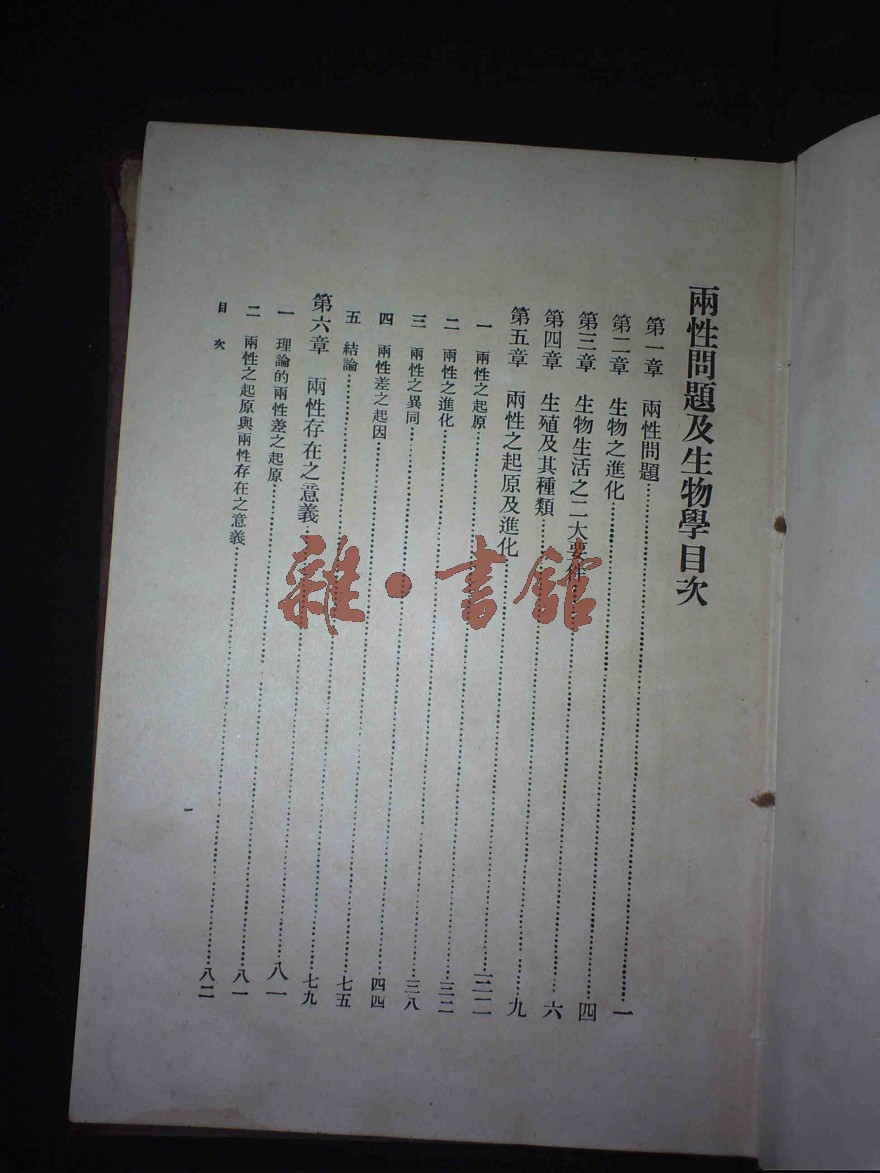 兩性問題及生物學目次
第一章 兩性問題……一
第二章 生物之進化……四
第三章 生物生活之二大要件……六
第四章 生殖及其種類……九
第五章 兩性之起原及進化……二二
一 兩性之起原……三二
二 兩性之進化……三八
三 兩性之異同……四四
四 兩性差之起因……七五
五 結論……七九
第六章 兩性存在之意義……八一
一 理論的兩性差之起原……八一
二 兩性之起原與兩性存在之意義……八二
目次
一
雜·書館